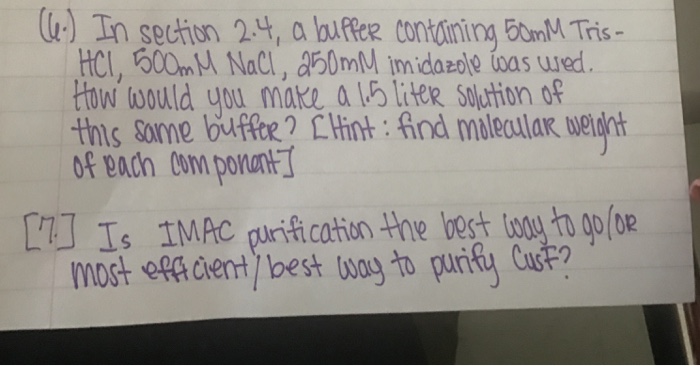 (6.) In section 2.4, a buffer containing 50mM Tris-
HCl, 500mM NaCl, 250mM imidazole was used.
How would you make a 1.5 liter solution of
this same buffer? [Hint: find molecular weight
of each component]
[7.] Is IMAC purification the best way to go/or
most efficient/best way to purify CusF?